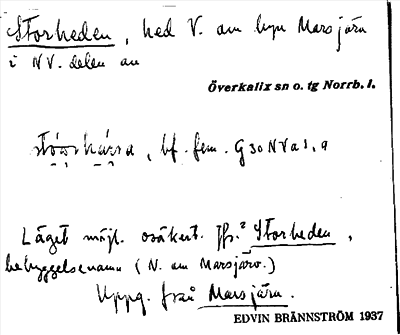 Storheden, hed V. om byn Marsjärv
i NV. delen av
Överkalix sn o. tg Norrb. l.
bf. fem. G30NVa1,9
Läget möjl. osäkert. Jfr. Storheden,
bebyggelsenamn (N. om Marsjärv.)
Uppg. från Marsjärv.
EDVIN BRÄNNSTRÖM 1937